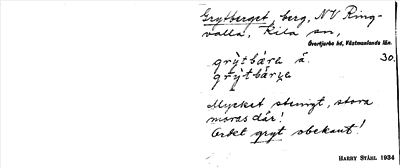 Grytberget, berg, NV Ring-
valla, Kila sn,
Övertjurbo hd, Västmanlands län.
grỳtbára ä. 30.
grỳtbárjɛ
Mycket stenigt, stora
moras där!
Ordet gryt obekant!
HARRY STÅHL 1934